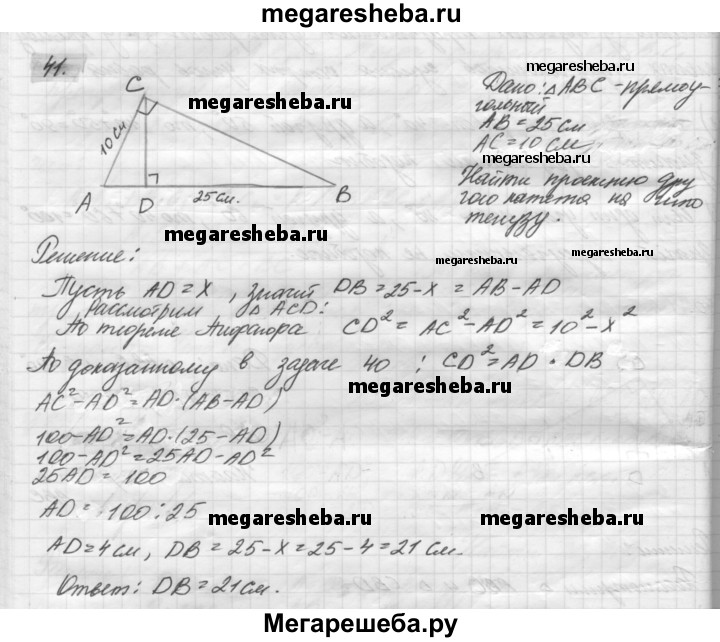 megaresheba.ru
41.
C
10 см
A
D
25 см.
B
megaresheba.ru
megaresheba.ru
Дано: △ABC - прямоу-
гольный
AB = 25 см
AC = 10 см
megaresheba.ru
Найти проекцию дру
гого катета на гипо
тенузу.
megaresheba.ru
Решение:
megaresheba.ru
megaresheba.ru
Пусть AD = x, значит DB = 25 - x = AB - AD
Рассмотрим △ACD:
По теореме Пифагора CD² = AC² - AD² = 10² - x²
По доказанному в задаче 40: CD² = AD · DB
megaresheba.ru
AC² - AD² = AD · (AB - AD)
100 - AD² = AD · (25 - AD)
100 - AD² = 25AD - AD²
25AD = 100
AD = 100 : 25
megaresheba.ru
megaresheba.ru
AD = 4 см, DB = 25 - x = 25 - 4 = 21 см.
Ответ: DB = 21 см.
Мегарешеба.ру